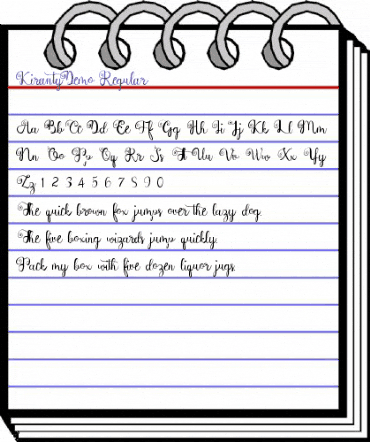 KirantyDemo Regular
Aa Bb Cc Dd Ee Ff Gg Hh Ii Jj Kk Ll Mm
Nn Oo Pp Qq Rr Ss Tt Uu Vv Ww Xx Yy
Zz 1 2 3 4 5 6 7 8 9 0
The quick brown fox jumps over the lazy dog.
The five boxing wizards jump quickly.
Pack my box with five dozen liquor jugs.